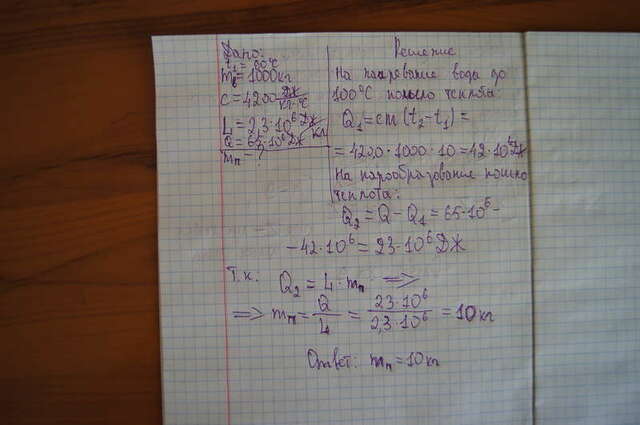 Дано:
t₁ = 90°C
mв = 1000кг
C = 4200 Дж/кг·°C
L = 2,3·10⁶ Дж/кг
Q = 65·10⁶ Дж
mп = ?
Решение
На нагревание воды до
100°C пошло теплота:
Q₁ = cm(t₂-t₁) =
= 4200·1000·10 = 42·10⁶ Дж
На парообразование пошло
теплота:
Q₂ = Q - Q₁ = 65·10⁶ -
- 42·10⁶ = 23·10⁶ Дж
Т.к: Q₂ = L·mп ⟹
⟹ mп = Q/L = 23·10⁶/2,3·10⁶ = 10кг
Ответ: mп = 10кг